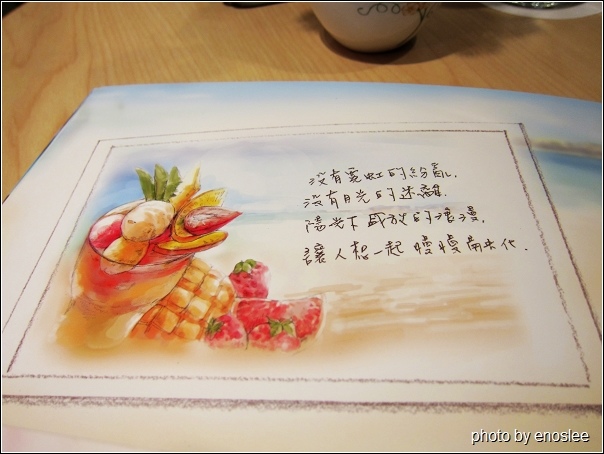 沒有霓虹的紛亂,
沒有月光的迷離,
陽光下盛放的浪漫,
讓人想一起 慢慢融化.
photo by enoslee